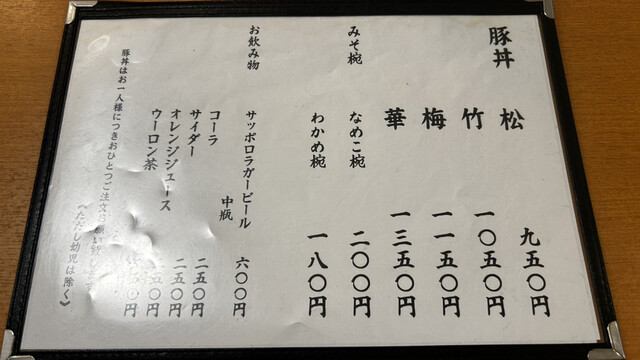 豚丼
松 九五〇円
竹 一〇五〇円
梅 一一五〇円
華 一三五〇円
みそ椀
なめこ椀 二〇〇円
わかめ椀 一八〇円
お飲み物
サッポロラガービール
中瓶 六〇〇円
コーラ 二五〇円
サイダー 二五〇円
オレンジジュース 五〇円
ウーロン茶 〇円
豚丼はお一人様につきおひとつご注文お願い
《ただし幼児は除く》